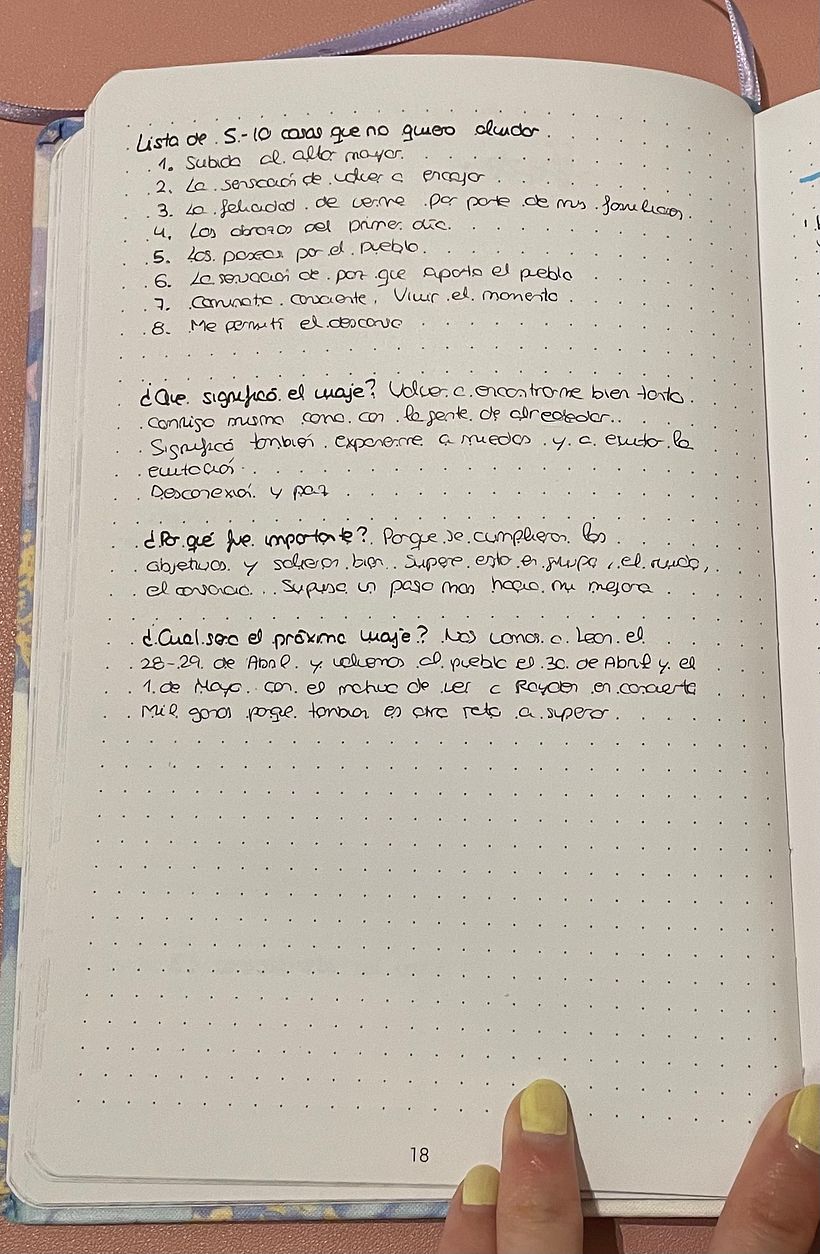 Lista de 5-10 cosas que no quiero olvidar.
1. Subida al altar mayor.
2. La sensación de volver a encajar
3. La felicidad de verme por parte de mis familiares.
4. Los abrazos del primer día.
5. Los paseos por el pueblo.
6. La sensación de paz que aporta el pueblo
7. Caminata consciente. Vivir el momento.
8. Me permití el descanso
¿Que significó el viaje? Volver a encontrarme bien tanto
conmigo misma como con la gente de alrededor.
Significó también exponerme a miedos y a evito la
evitación.
Desconexión y paz
¿Por qué fue importante? Porque se cumplieron los
objetivos y salieron bien. Supere esto en grupo, el ruido,
el cansancio... Supuso un paso mas hacia mi mejora.
¿Cual sera el próximo viaje? Nos vamos a Leon el
28-29 de Abril y volvemos al pueblo el 30 de Abril y el
1 de Mayo con el motivo de ver a Rayden en concierto
Mil ganas porque tambien es otro reto a superar.
18